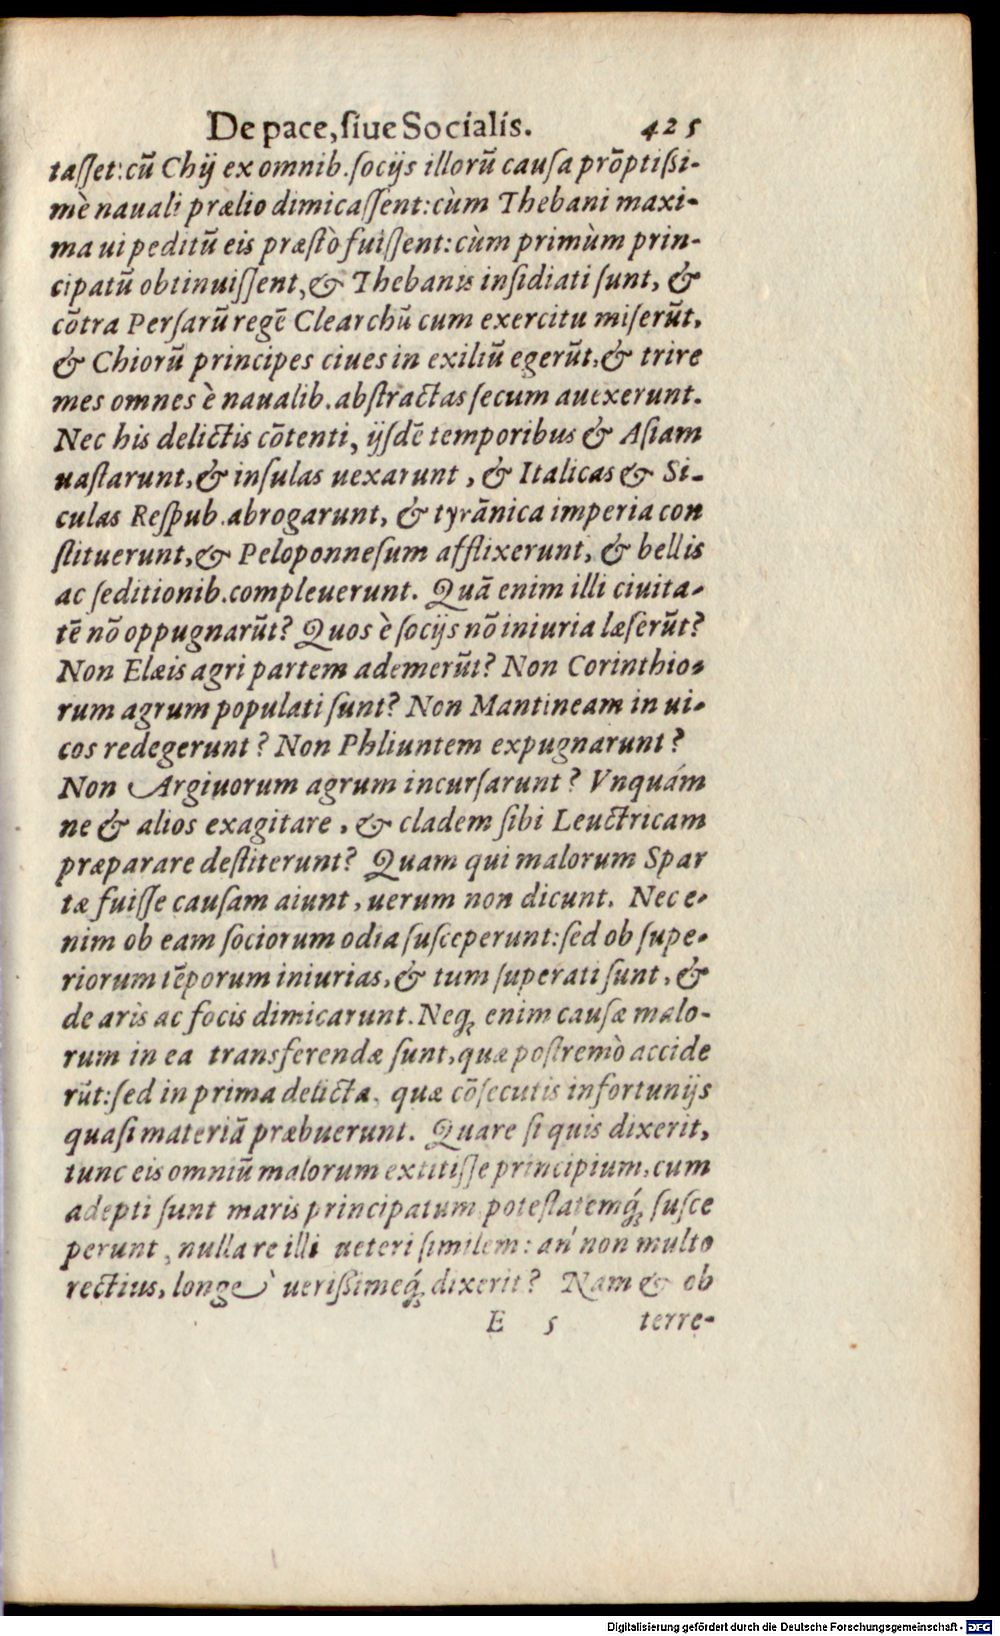 De pace, ſiue Socialis. 425
taſſet: cū Chij ex omnib. ſocijs illorū cauſa prōptißi-
mè nauali prælio dimicaſſent: cùm Thebani maxi-
ma ui peditū eis præſtò fuiſſent: cùm primùm prin-
cipatū obtinuiſſent, & Thebanis inſidiati ſunt, &
cōtra Perſarū regē Clearchū cum exercitu miſerūt,
& Chiorū principes ciues in exiliū egerūt, & trire
mes omnes è naualib. abſtractas ſecum auexerunt.
Nec his delictis cōtenti, ijſdē temporibus & Aſiam
uaſtarunt, & inſulas uexarunt, & Italicas & Si-
culas Reſpub. abrogarunt, & tyrānica imperia con
ſtituerunt, & Peloponneſum afflixerunt, & bellis
ac ſeditionib. compleuerunt. Quā enim illi ciuita-
tē nō oppugnarūt? Quos è ſocijs nō iniuria læſerūt?
Non Elæis agri partem ademerūt? Non Corinthio-
rum agrum populati ſunt? Non Mantineam in ui-
cos redegerunt? Non Phliuntem expugnarunt?
Non Argiuorum agrum incurſarunt? Vnquám
ne & alios exagitare, & cladem ſibi Leuctricam
præparare deſtiterunt? Quam qui malorum Spar
tæ fuiſſe cauſam aiunt, uerum non dicunt. Nec e-
nim ob eam ſociorum odia ſuſceperunt: ſed ob ſupe-
riorum tēporum iniurias, & tum ſuperati ſunt, &
de aris ac focis dimicarunt. Neq; enim cauſæ malo-
rum in ea transferendæ ſunt, quæ poſtremò accide
rūt: ſed in prima delicta, quæ cōſecutis infortunijs
quaſi materiā præbuerunt. Quare ſi quis dixerit,
tunc eis omniū malorum extitiſſe principium, cum
adepti ſunt maris principatum, poteſtatemq́; ſuſce
perunt, nulla re illi ueteri ſimilem: an' non multo
rectius, longe&#x300; uerißimeq́; dixerit? Nam & ob
E 5 terre-
Digitalisierung gefördert durch die Deutsche Forschungsgemeinschaft - DFG